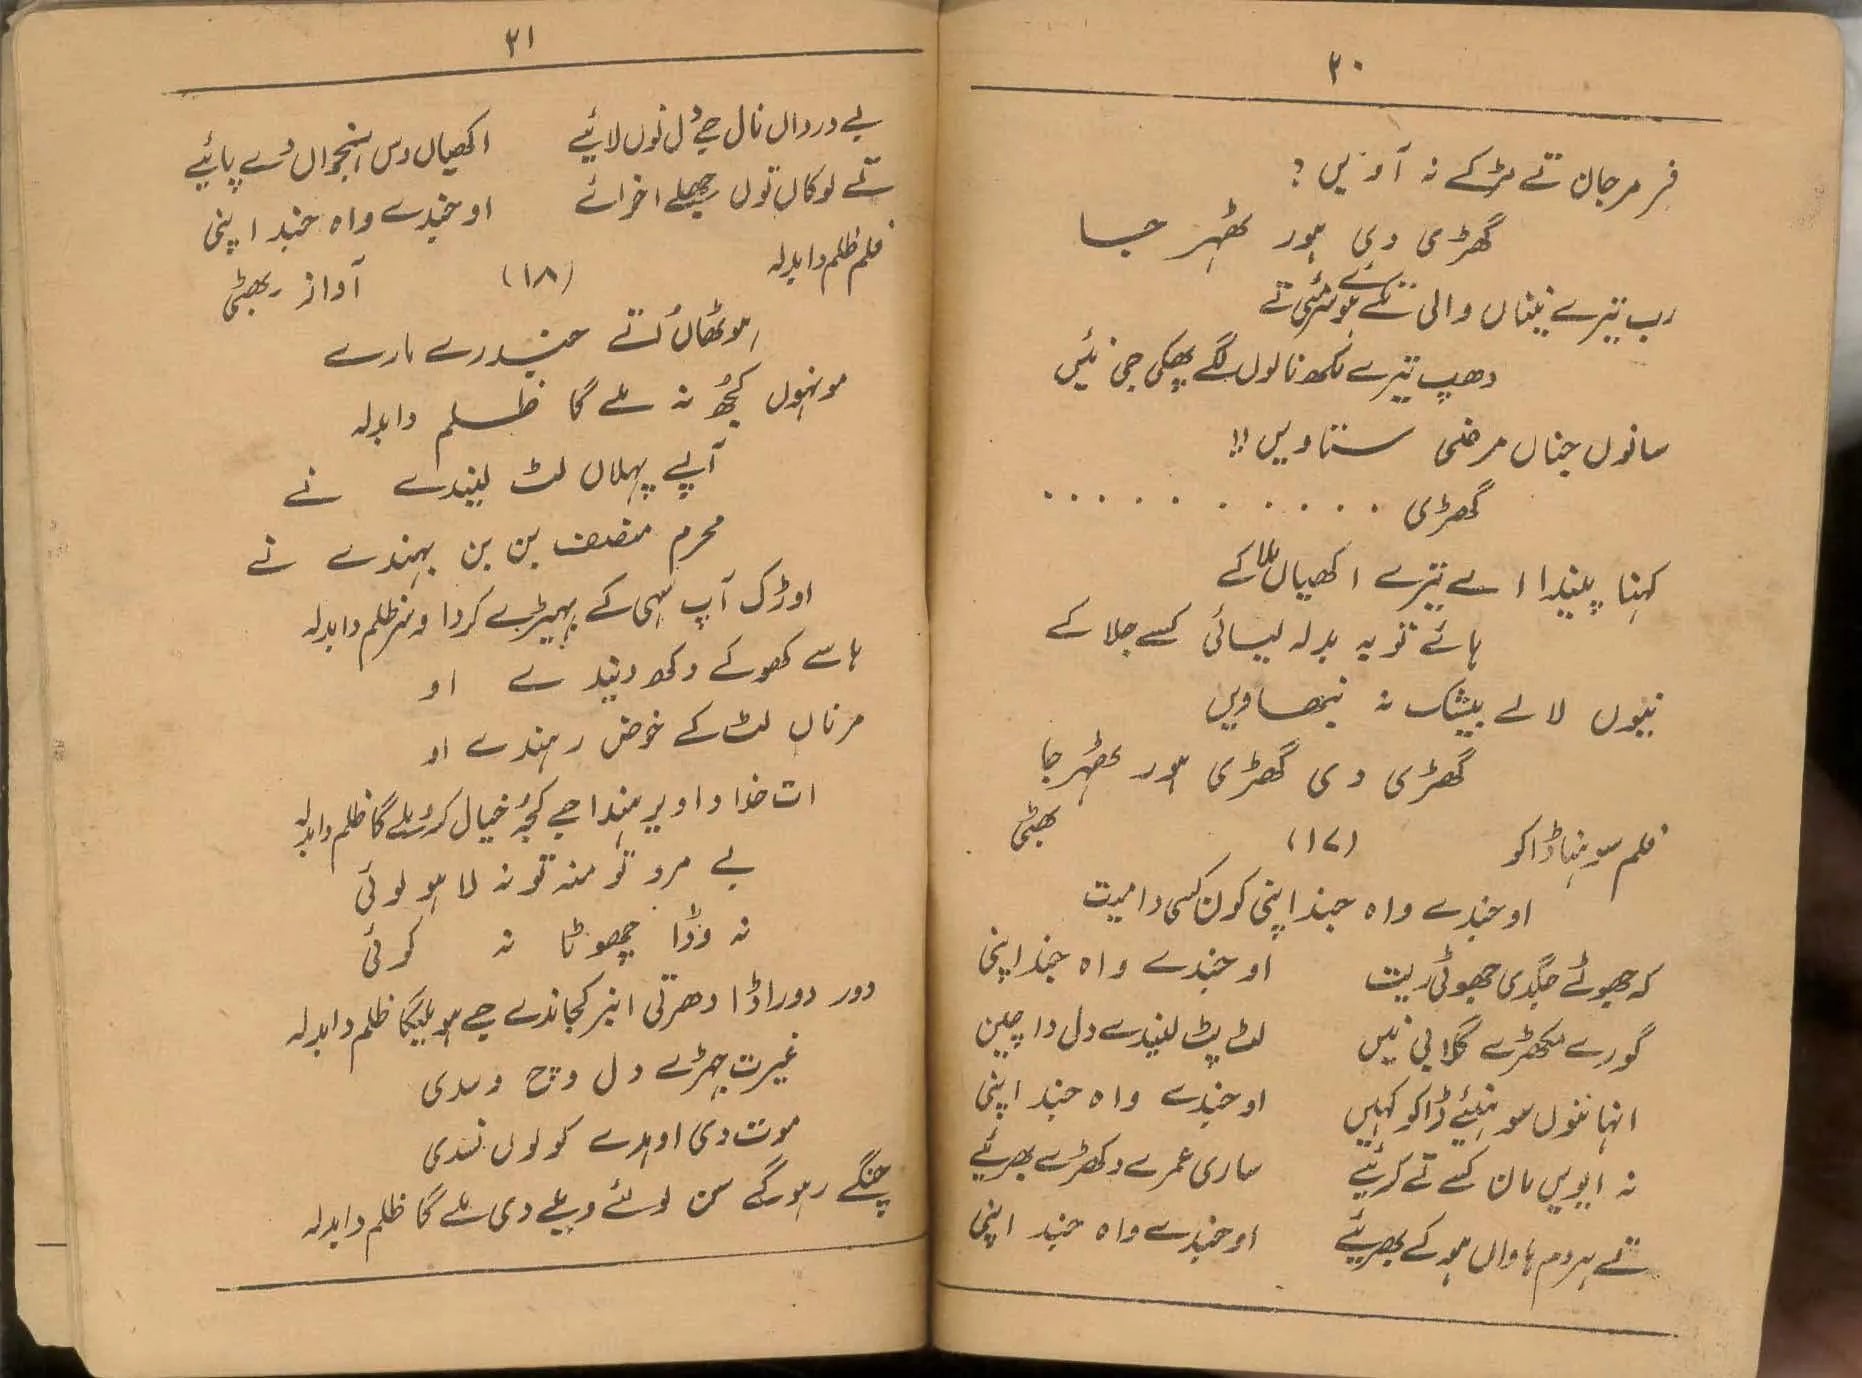 ۲۰
فر مرجان تے مڑکے نہ آویں ؟
گھڑی دی ہور ٹھہر جا
رب تیرے نیناں والی تکے تے
دھپ تیرے مکھ نالوں لگے پھکی جی نئیں
سانوں جناں مرضی ستاویں !!
گھڑی . . . . . . . . . . .
کہنا پیندا اے تیرے اکھیاں ملا کے
ہائے توبہ بدلہ لیائی کسے جلا کے
نیوں لا لے بیشک نہ نبھاویں
گھڑی دی گھڑی ہور ٹھہر جا
فلم سوہنا ڈاکو (۱۷) بھٹی
او جندے واہ جند اپنی کون کسی دا میت
کہ جھوٹے جگدی جھوٹی ریت او جندے واہ جند اپنی
گورے مکھڑے گلابی نیں لٹ پٹ لیندے دل دا چین
انہا نوں سوہنیئے ڈاکو کہیں او جندے واہ جند اپنی
نہ ایویں مان کسے تے کریئے ساری عمرے دکھڑے بھریئے
تے ہر دم ہاواں ہو کے بھریئے او جندے واہ جند اپنی
۲۱
بے درداں نال جے دل نوں لائیے اکھیاں وس انجواں دے پائیے
تے لوکاں توں اخرائے او جندے واہ جند اپنی
فلم ظلم دا بدلہ (۱۸) آواز ربھٹی
ہوٹھاں تے جندرے مارے
مونہوں کجھ نہ ملے گا ظلم دا بدلہ
آپے پہلاں لٹ لیندے نے
محرم منصف بن بن بہندے نے
اوڑک آپ سہی کے کردا ظلم دا بدلہ
ہاسے کھو کے دکھ دیندے او
مرناں لٹ کے خوض رہندے او
ات خدا دا ویر ہندا جے کجھ خیال کرو ملے گا ظلم دا بدلہ
بے مرو تو منہ تو نہ لاہو لوئی
نہ وڈا چھوٹا نہ کوئی
دور دوراڈا دھرتی جے ہو ملیگا ظلم دا بدلہ
غیرت جہڑے دل وچ وسدی
موت دی اوہدے کولوں نسدی
چنگے رہو گے سن لوئے ویلے دی ملے گا ظلم دا بدلہ